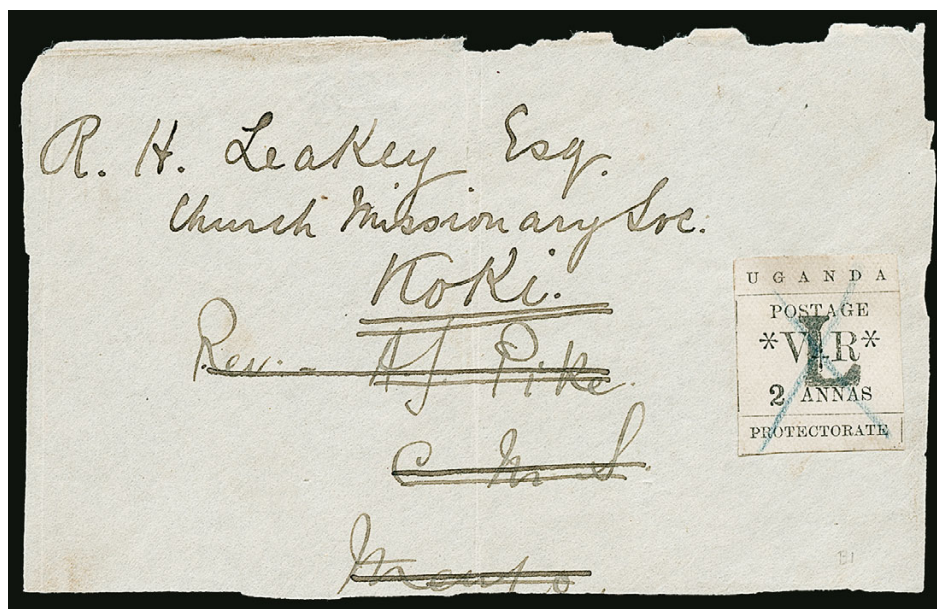 R. H. Leakey Esq.
Church Missionary Soc:
Koki.
Rev. A. J. Pike.
C M S.
Mengo.
UGANDA
POSTAGE
*V R*
L
2 ANNAS
PROTECTORATE
E1